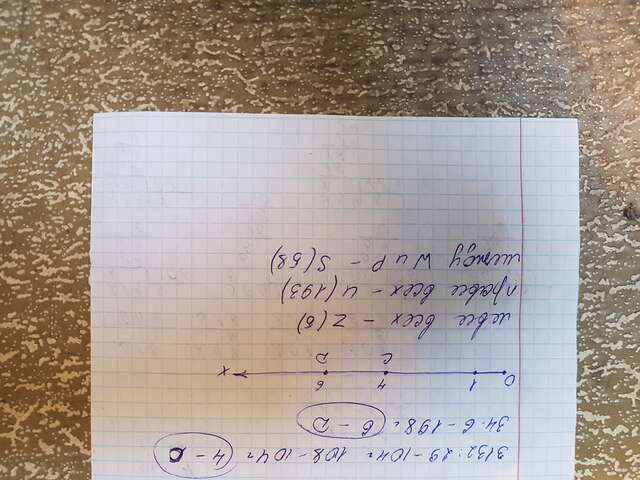 3132:29-104=108-104=4-C
34·6-198=6-D
0 1 4 6 x
C D
левее всех - Z(5)
правее всех - U(193)
между W и P - S(58)